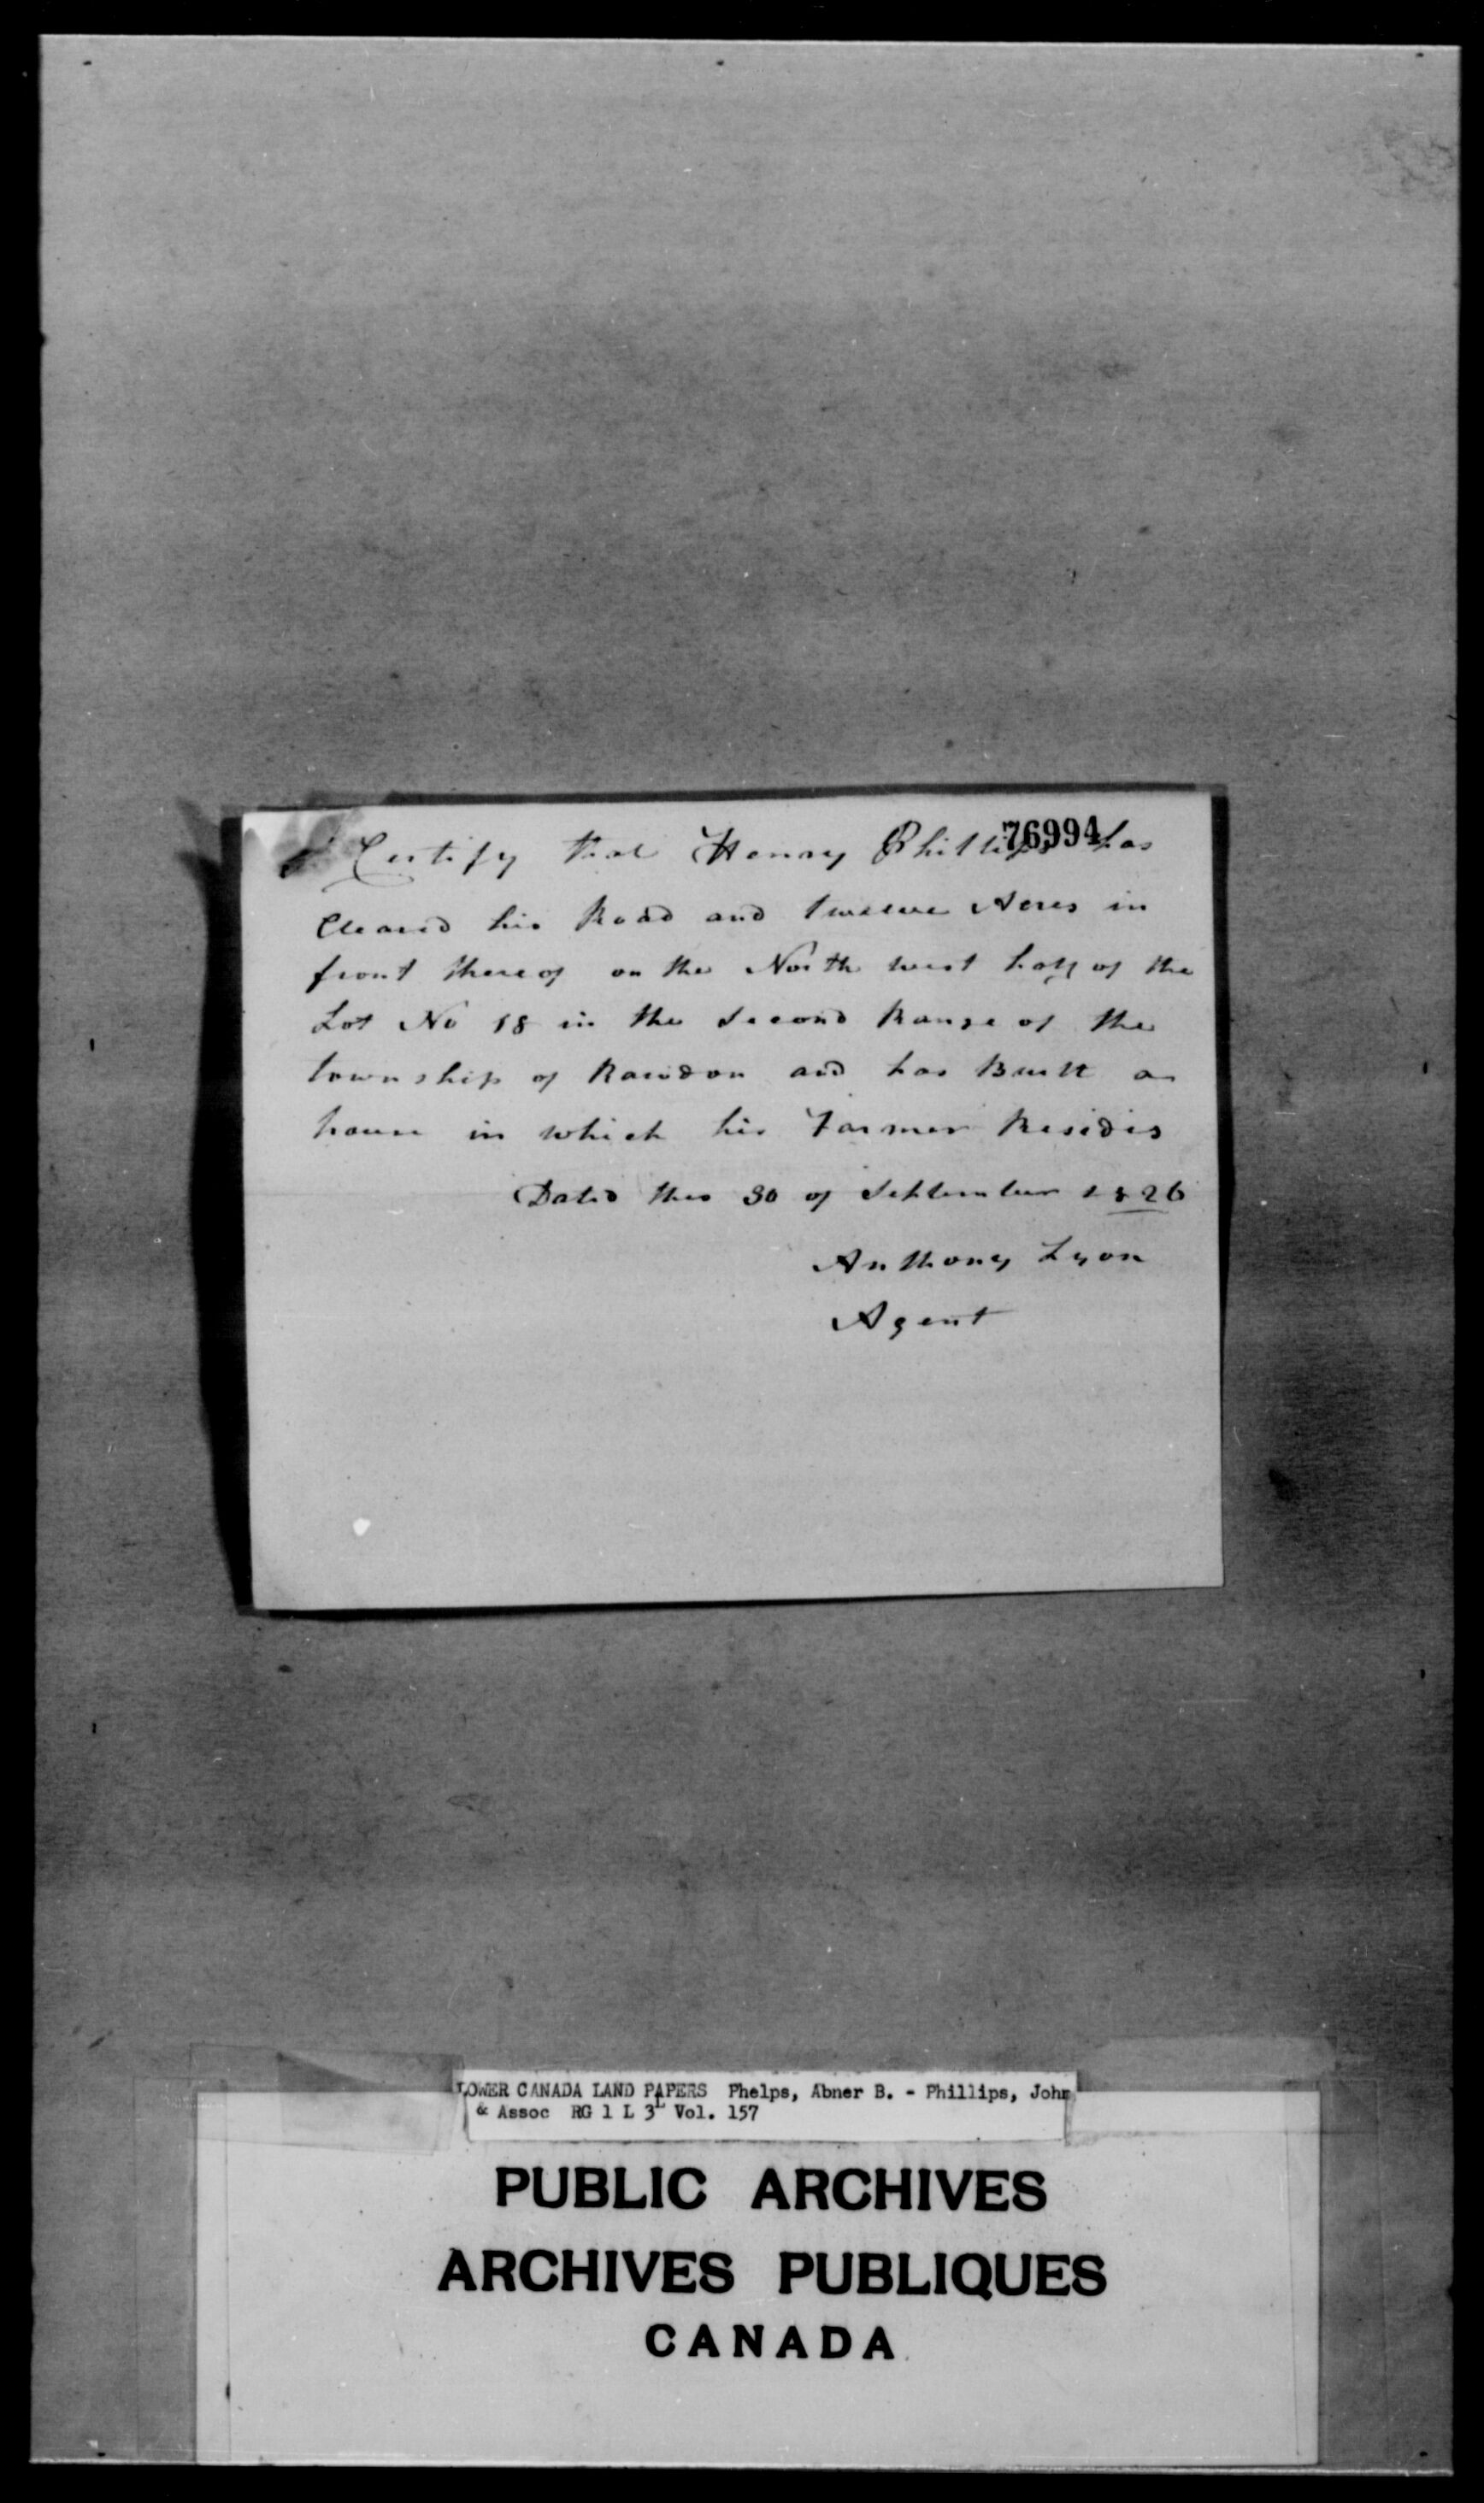 76994
I Certify that Henry Phillips has
Cleared his Road and twelve Acres in
front thereof on the North west half of the
Lot No 18 in the Second Range of the
township of Rawdon and has Built a
house in which his Farmer Resides
Dated this 30 of September 1826
Anthony Lyon
Agent
LOWER CANADA LAND PAPERS Phelps, Abner B. - Phillips, John
& Assoc RG 1 L 3L Vol. 157
PUBLIC ARCHIVES
ARCHIVES PUBLIQUES
CANADA